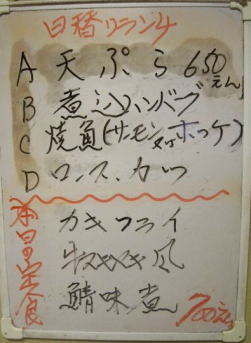 日替りランチ
A 天ぷら 650えん
B 煮込ハンバーグ
C 焼魚(サーモン又はホッケ)
D ロースカツ
本日の定食
カキフライ
牛スキヤキ風
鯖味煮
700えん